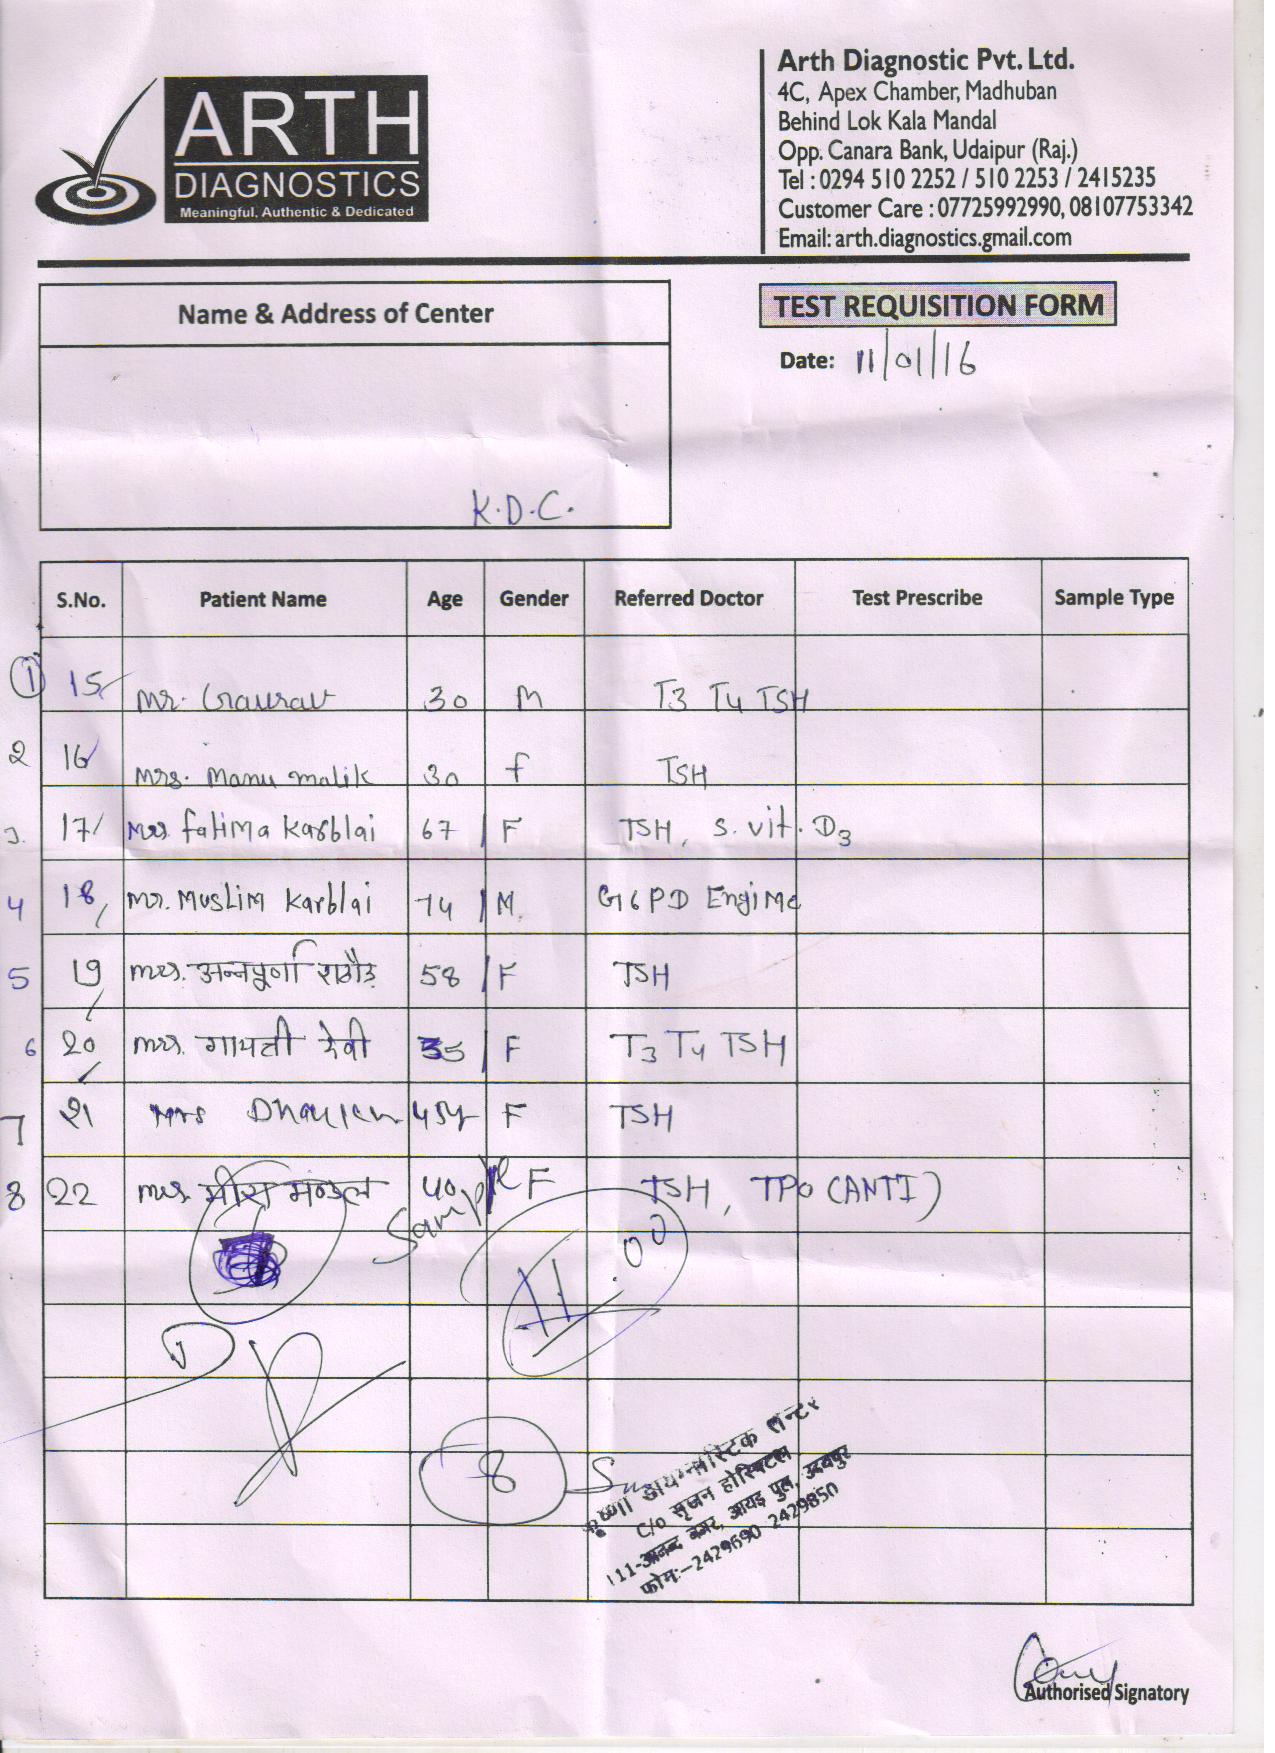 ARTH
DIAGNOSTICS
Meaningful, Authentic & Dedicated
Arth Diagnostic Pvt. Ltd.
4C, Apex Chamber, Madhuban
Behind Lok Kala Mandal
Opp. Canara Bank, Udaipur (Raj.)
Tel : 0294 510 2252 / 510 2253 / 2415235
Customer Care : 07725992990, 08107753342
Email: arth.diagnostics.gmail.com
Name & Address of Center
K.D.C.
TEST REQUISITION FORM
Date: 11/01/16
S.No. Patient Name Age Gender Referred Doctor Test Prescribe Sample Type
1 15 Mr. Gaurav 30 M T3 T4 TSH
2 16 Mrs. Manu malik 30 f TSH
3. 17 Mrs. fatima Karblai 67 F TSH, S. vit. D3
4 18 Mr. Muslim Karblai 74 M G6PD Enzime
5 19 Mrs. अन्नपूर्णा राठौड़ 58 F TSH
6 20 Mrs. गायत्री देवी 35 F T3 T4 TSH
7 21 Mrs 45y F TSH
8 22 Mrs. मीरा मन्डल 40 F TSH, TPO (ANTI)
Sample
11.00
8
कृष्णा डायग्नोस्टिक सेन्टर
C/o सृजन होस्पिटल
111-आनन्द नगर, आयड़ पुल, उदयपुर
फोन:-2429690 2429850
Authorised Signatory